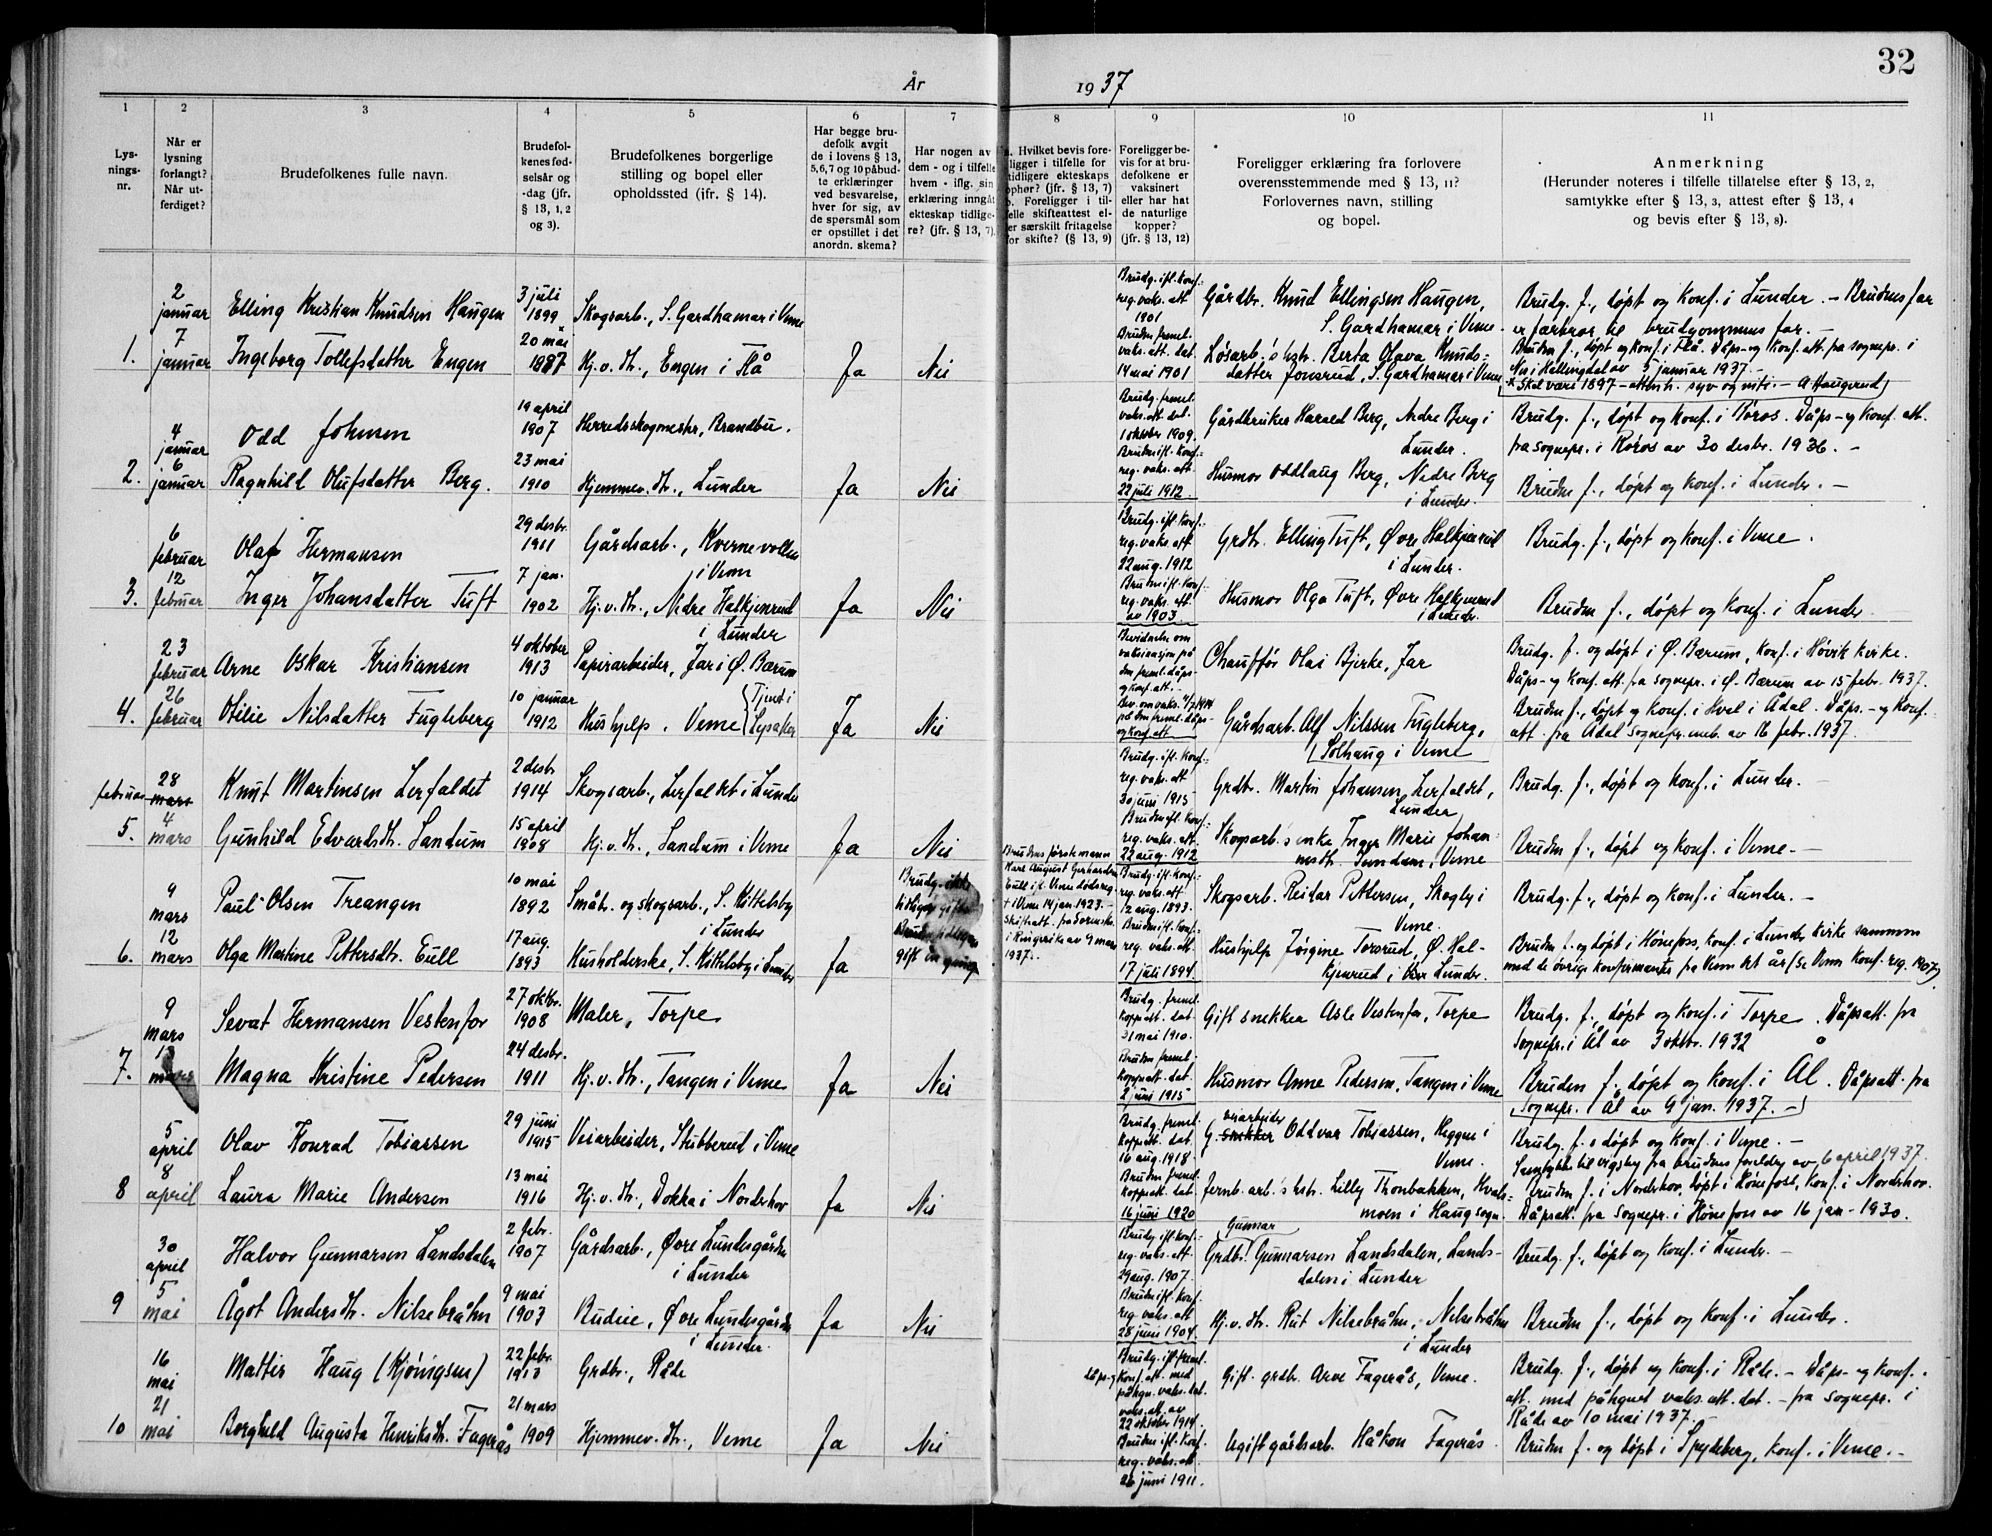 32
År 1937
1
Lys-
nings-
nr.
2
Når er
lysning
forlangt?
Når ut-
ferdiget?
3
Brudefolkenes fulle navn.
4
Brudefol-
kenes fød-
selsår og
-dag (jfr.
§ 13, 1, 2
og 3).
5
Brudefolkenes borgerlige
stilling og bopel eller
opholdssted (jfr. § 14).
6
Har begge bru-
defolk avgit
de i lovens § 13,
5,6,7 og 10 påbud-
te erklæringer
ved besvarelse,
hver for sig, av
de spørsmål som
er opstillet i det
anordn. skema?
7
Har nogen av
dem - og i tilfelle
hvem - iflg. sin
erklæring inngåt
ekteskap tidlige-
re? (jfr. § 13, 7).
8
a. Hvilket bevis fore-
ligger i tilfelle for
tidligere ekteskaps
ophør? (jfr. § 13, 7)
b. Foreligger i til-
felle skifteattest el-
ler særskilt fritagelse
for skifte? (§ 13, 9)
9
Foreligger be-
vis for at bru-
defolkene er
vaksinert
eller har hat
de naturlige
kopper?
(jfr. § 13, 12)
10
Foreligger erklæring fra forlovere
overensstemmende med § 13, 11?
Forlovernes navn, stilling
og bopel.
11
Anmerkning
(Herunder noteres i tilfelle tillatelse efter § 13, 2,
samtykke efter § 13, 3, attest efter § 13, 4
og bevis efter § 13, 8).
1.
2 januar
7 januar
Elling Kristian Knudsen Haugen
Ingeborg Tollefsdatter Engen
3 juli 1899
20 mai 1887
Skogsarb., S. Gardhamar i Veme
Hj.v.dtr., Engen i Flå
Ja
Nei
Brudg. ifl. konf.-
reg. vaks. att.
1901
Bruden freml.
vaks. att. dat.
14 mai 1901
Gårdbr. Knud Ellingsen Haugen,
S. Gardhamar i Veme.
Løsarb.'s hstr. Berta Olava Knuds-
datter Jonsrud, S. Gardhamar i Veme
Brudg. f., døpt og konf. i Lunder. - Brudens far
er farbror til brudgommens far. -
Bruden f., døpt og konf. i Flå. Dåps- og konf. att. fra sognepr. i
Nes i Hallingdal av 5 januar 1937. -
x Skal være 1897 - attenh. syv og nitti. - A Haugerud
2.
4 januar
6 januar
Odd Johnsen
Ragnhild Olufsdatter Berg.
19 april 1907
23 mai 1910
Herredsskogmester, Brandbu.
Hjemmev. dtr., Lunder
Ja
Nei
Brudg. freml.
vaks. att. dat.
1 oktober 1909.
Bruden ifl. konf.-
reg. vaks. att.
22 juli 1912.
Gårdbruker Harald Berg, Nedre Berg i
Lunder.
Husmor Oddlaug Berg, Nedre Berg
i Lunder.
Brudg. f., døpt og konf. i Røros. Dåps- og konf. att.
fra sognepr. i Røros av 30 desbr. 1936. -
Bruden f., døpt og konf. i Lunder. -
3.
6 februar
12 februar
Olaf Hermansen
Inger Johansdatter Tuft
29 desbr. 1911
7 jan. 1902
Gårdsarb., Kvernevollen
i Veme
Hj.v.dtr., Nedre Halkjenrud
i Lunder
Ja
Nei
Brudg. ifl. konf.-
reg. vaks. att.
22 aug. 1912
Bruden ifl. konf.-
reg. vaks. att.
av 1903.
Grdbr. Elling Tuft, Øvre Halkjenrud
i Lunder.
Husmor Olga Tuft, Øvre Halkjenrud
i Lunder.
Brudg. f., døpt og konf. i Veme.
Bruden f., døpt og konf. i Lunder
4.
23 februar
26 februar
Arne Oskar Kristiansen
Otilie Nilsdatter Fugleberg
4 oktober 1913
10 januar 1912
Papirarbeider, Jar i Ø. Bærum
Hushjelp, Veme (Tjent i
Lysaker
Ja
Nei
Bevidnelse om
vaksinasjon på
den freml. dåps-
og konf. att. -
Bev. om vaks. 4/7 1914
på den freml. dåps-
og konf. att.
Chauffør Olai Bjerke, Jar
Gårdsarb. Alf Nilssen Fugleberg,
Solhaug i Veme
Brudg. f. og døpt i Ø. Bærum, konf. i Høvik kirke.
Dåps- og konf. att. fra sognepr. i Ø. Bærum av 15 febr. 1937.
Bruden f., døpt og konf. i Hval i Ådal. Dåps- og konf.-
att. fra Ådal sognepr. emb. av 16 febr. 1937.
5.
28 februar mars
4 mars
Knut Martinsen Lerfaldet
Gunhild Edvardsdtr. Sandum
2 desbr 1914
15 april 1908
Skogsarb., Lerfaldet i Lunder
Hj.v.dtr., Sandum i Veme
Ja
Nei
Brudg. ifl. konf.-
reg. vaks. att
30 juni 1915
Bruden ifl. konf.-
reg. vaks. att.
22 aug. 1912
Grdbr. Martin Johansen Lerfaldet,
Lunder
Skogsarb's enke Inger Marie Johan-
nesdtr. Sundum, Veme
Brudg. f., døpt og konf. i Lunder. -
Bruden f., døpt og konf. i Veme. -
6.
9 mars
12 mars
Paul Olsen Treangen
Olga Martine Pettersdtr. Eull
10 mai 1892
17 aug. 1893
Småbr. og skogsarb., S. Kittelsby
i Lunder
Husholderske, S. Kittelsby i Lunder
Ja
Brudg. ikke
tidligere gift.
Bruden tidligere
gift en gang
Brudens første mann
Karl August Gerhardsen
Eull ifl. Veme dødsreg.
† i Veme 14 jan. 1923. -
Skifteatt. fra Sorenskr.
i Ringerike av 9 mars
1937. -
Brudg. ifl. konf.-
reg. vaks. att.
12 aug. 1893.
Bruden ifl. konf.-
reg. vaks. att.
17 juli 1894.
Skogsarb. Reidar Pettersen, Skogly i
Veme.
Hushjelp Jørgine Torsrud, Ø. Hal-
kjenrud i Lunder.
Brudg. f., døpt og konf. i Lunder. -
Bruden f. og døpt i Hønefoss, konf. i Lunder kirke sammen
med de øvrige konfirmanter fra Veme det år (Se Veme konf. reg. 1907).
7.
9 mars
mars
Sevat Hermansen Vestenfor
Magna Kristine Pedersen
27 oktbr. 1908
24 desbr. 1911
Maler, Torpe
Hj.v.dtr., Tangen i Veme
Ja
Nei
Brudg. freml.
koppeatt. dat.
31 mai 1910.
Bruden freml.
koppeatt. dat.
2 juni 1915
Gift snekker Asle Vestenfor, Torpe
Husmor Anne Pedersen, Tangen i Veme
Brudg. f., døpt og konf. i Torpe. Dåpsatt. fra
Sognepr. i Ål av 3 oktbr. 1932
Bruden f., døpt og konf. i Ål. Dåpsatt. fra
Sognepr. i Ål av 9 jan. 1937. -
8
5 april
8 april
Olav Konrad Tobiassen
Laura Marie Andersen
29 juni 1915
13 mai 1916
Veiarbeider, Stubberud i Veme
Hj.v.dtr., Dokka i Norderhov
Ja
Nei
Brudg. freml.
koppeatt. dat.
16 aug. 1918.
Bruden freml.
koppeatt. dat.
16 juni 1920
veiarbeider
G. snekker Oddvar Tobiassen, Heggen i
Veme.
Jernb. arb.'s hstr. Lilly Thonbakken, Hvals-
moen i Haug sogn.
Brudg. f. døpt og konf. i Veme. -
Samtykke til vigsky fra brudens foreldre av 6 april 1937.
Bruden f. i Norderhov, døpt i Hønefoss, konf. i Norderhov.
Dåpsatt. fra sognepr. i Hønefoss av 16 jan - 1930.
9
30 april
5 mai
Halvor Gunnarsen Landsdalen
Ågot Andersdtr. Nilsebråhn
2 febr. 1907
9 mai 1903
Gårdsarb., Øvre Lundesgården
i Lunder
Budeie, Øvre Lundesgården
i Lunder.
Ja
Nei
Brudg. ifl. konf.-
reg. vaks. att.
29 aug. 1907.
Bruden ifl. konf.
reg. vaks. att
28 juni 1904.
Gunnar
Grdbr. Gunnarsen Landsdalen, Lands-
dalen i Lunder
Hj.v.dtr. Rut Nilsebråhn, Nilsebråhn
i Lunder
Brudg. f., døpt og konf. i Lunder. -
Bruden f., døpt og konf. i Lunder.
10
16 mai
21 mai
Mattis Haug (Kjønigsen)
Borghild Augusta Henriksdtr. Fagerås
22 febr. 1913
21 mars 1909
Grdbr., Råde
Hjemmev. dtr., Veme
Ja
Nei
dåps- og
Brudg. ifl. freml.
konf. att. med
påtegn. vaks. dat.
vaks. att. av
22 oktober 1914.
Bruden ifl. konf.
reg. vaks. att
26 juni 1911.
Gift. grdbr. Arve Fagerås, Veme.
Ugift gårdsarb. Håkon Fagerås
Brudg. f., døpt og konf. i Råde. - Dåps- og konf.-
att. med påtegnet vaks. att. dat. - fra sognepr. i
Råde av 10 mai 1937. -
Bruden f. og døpt i Spydeberg, konf. i Veme. -